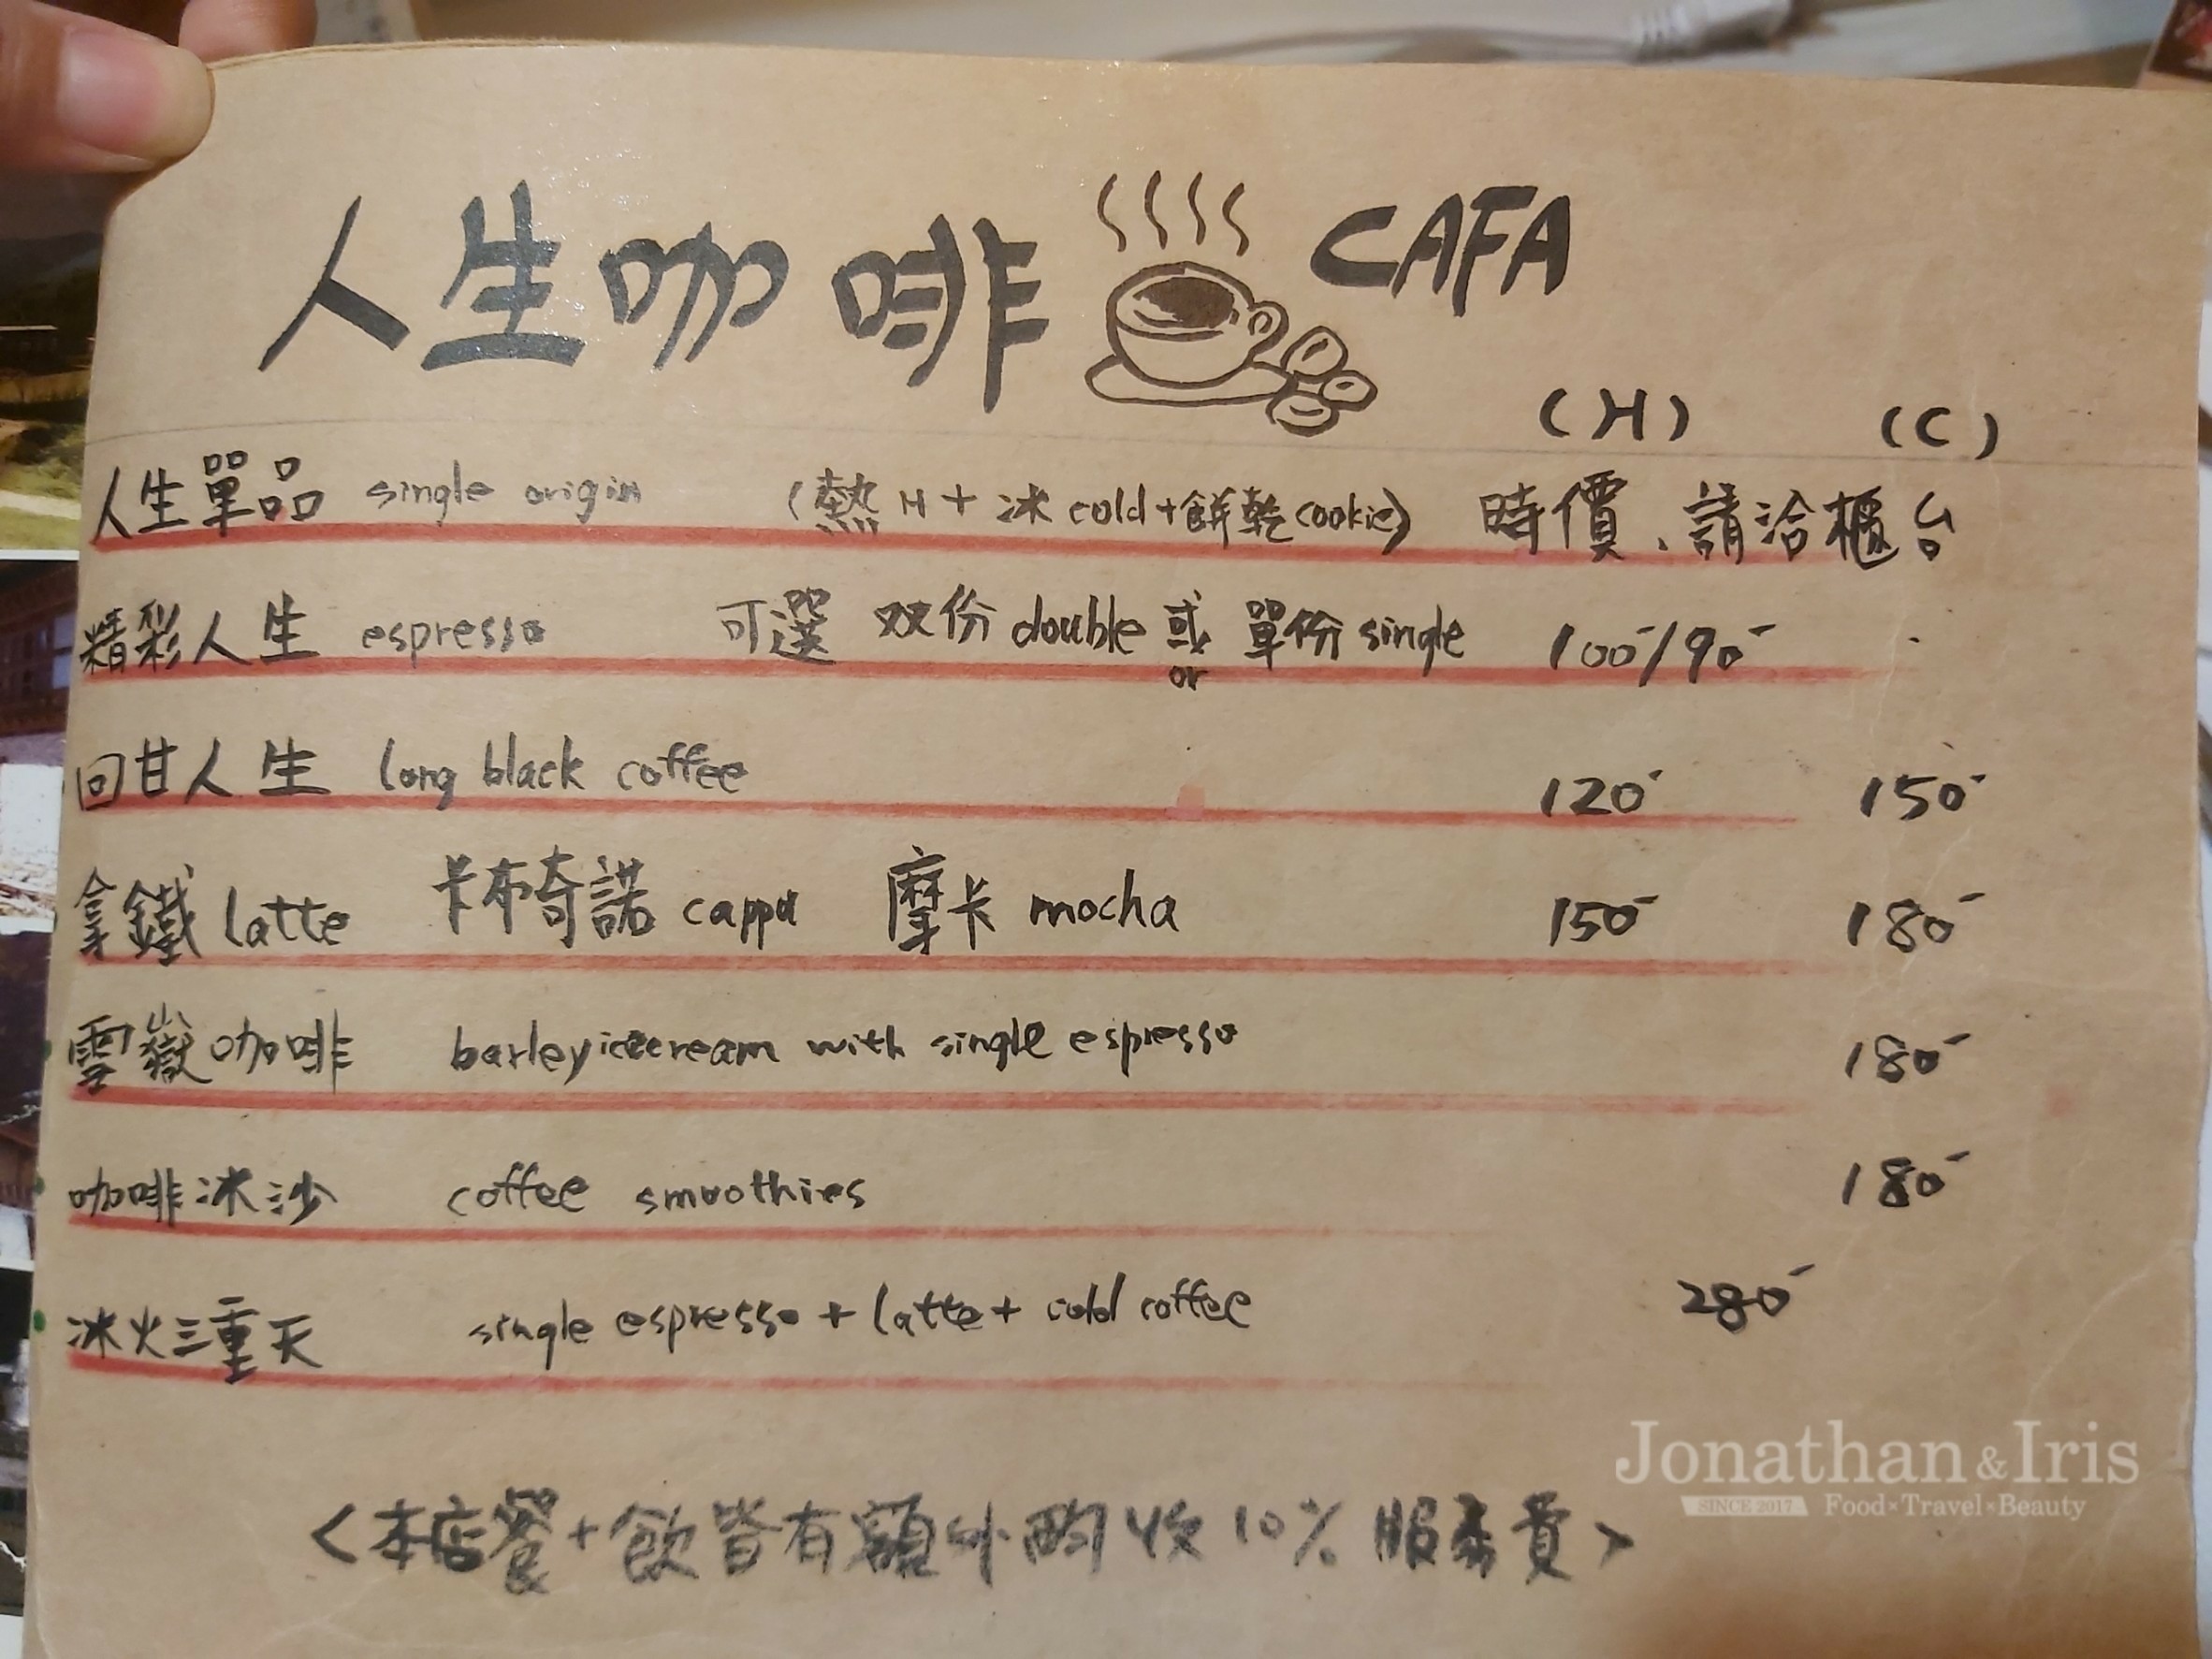 人生咖啡 CAFA
(H) (C)
人生單品 single origin (熱H+冰cold+餅乾cookie) 時價、請洽櫃台
精彩人生 espresso 可選 双份 double 或 單份 single 100/90
or
回甘人生 long black coffee 120 150
拿鐵 latte 卡布奇諾 cappu 摩卡 mocha 150 180
雪嶽咖啡 barley icecream with single espresso 180
咖啡冰沙 coffee smoothies 180
冰火三重天 single espresso + latte + cold coffee 280
<本店餐+飲皆有額外酌收10%服務費>
Jonathan & Iris
SINCE 2017 Food×Travel×Beauty